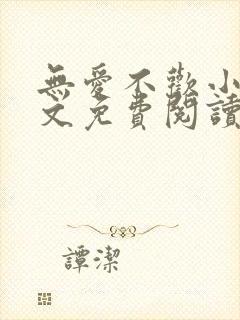 無愛不歡小
文免費閱讀
譚潔